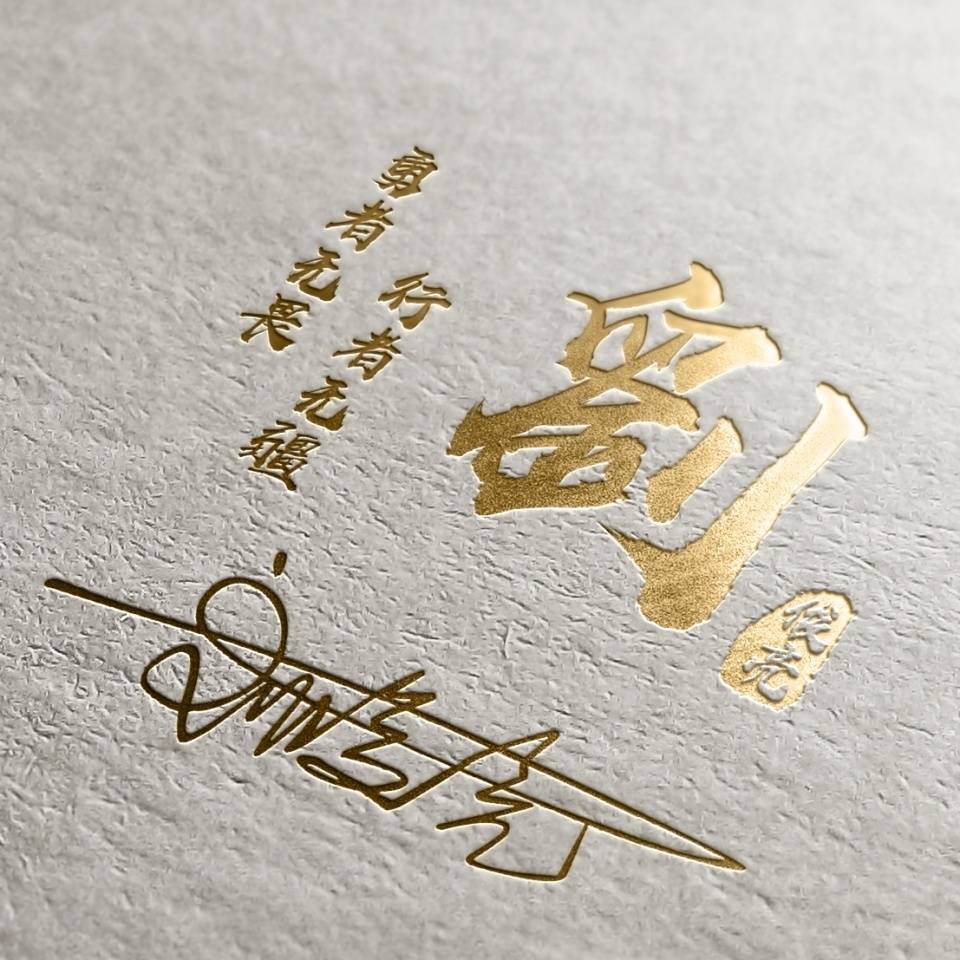 勇者无畏
行者无疆
剑
俊亮